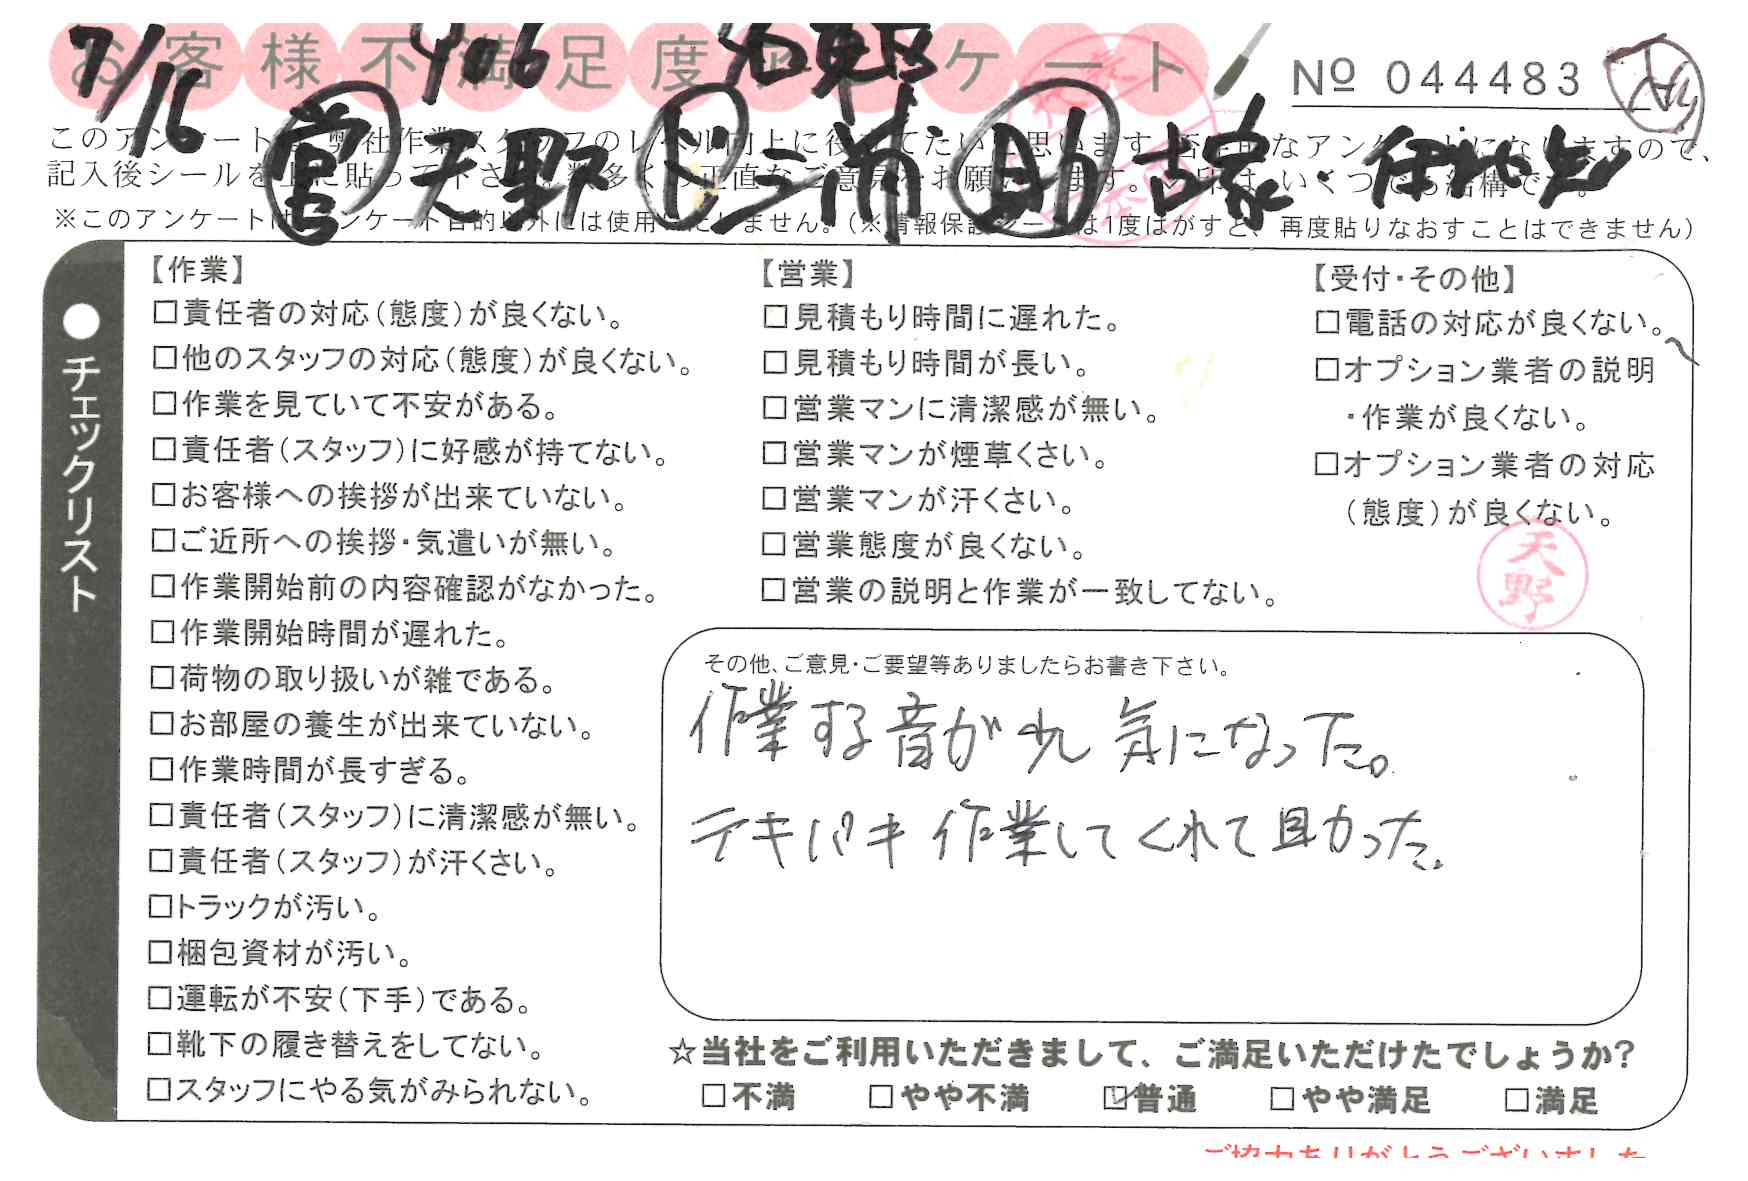 お客様不満足度アンケート
№ 044483
7/16
営 天野 ド 三浦 助 古家・
このアンケートは、弊社作業スタッフのレベル向上に役立てたいと思います。否定的なアンケートになりますので、
記入後シールを上に貼って下さい。数多くの正直なご意見をお願いします。
※このアンケートはアンケート目的以外には使用いたしません。(※情報保護シールは1度はがすと、再度貼りなおすことはできません)
●チェックリスト
【作業】
□責任者の対応(態度)が良くない。
□他のスタッフの対応(態度)が良くない。
□作業を見ていて不安がある。
□責任者(スタッフ)に好感が持てない。
□お客様への挨拶が出来ていない。
□ご近所への挨拶・気遣いが無い。
□作業開始前の内容確認がなかった。
□作業開始時間が遅れた。
□荷物の取り扱いが雑である。
□お部屋の養生が出来ていない。
□作業時間が長すぎる。
□責任者(スタッフ)に清潔感が無い。
□責任者(スタッフ)が汗くさい。
□トラックが汚い。
□梱包資材が汚い。
□運転が不安(下手)である。
□靴下の履き替えをしてない。
□スタッフにやる気がみられない。
【営業】
□見積もり時間に遅れた。
□見積もり時間が長い。
□営業マンに清潔感が無い。
□営業マンが煙草くさい。
□営業マンが汗くさい。
□営業態度が良くない。
□営業の説明と作業が一致してない。
【受付・その他】
□電話の対応が良くない。
□オプション業者の説明
・作業が良くない。
□オプション業者の対応
(態度)が良くない。
天野
その他、ご意見・ご要望等ありましたらお書き下さい。
作業する音が少し気になった。
テキパキ作業してくれて助かった。
☆当社をご利用いただきまして、ご満足いただけたでしょうか?
□不満 □やや不満 ☑普通 □やや満足 □満足
ご協力ありがとうございました